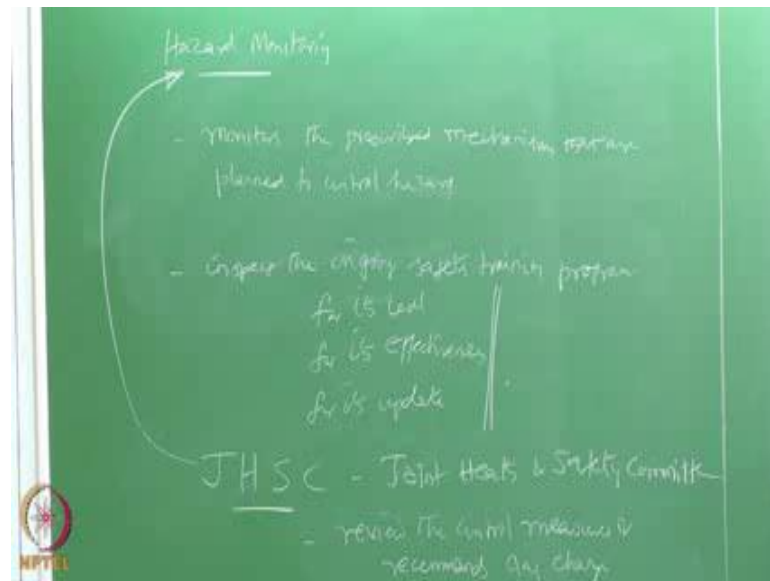 Hazard Monitoring
- monitor the prescribed mechanism that are
planned to control hazard
- inspect the ongoing safety training program
for its level
for its effectiveness
for its update
JHSC - Joint Health & Safety Committee
- review the control measures &
recommends any change
NPTEL